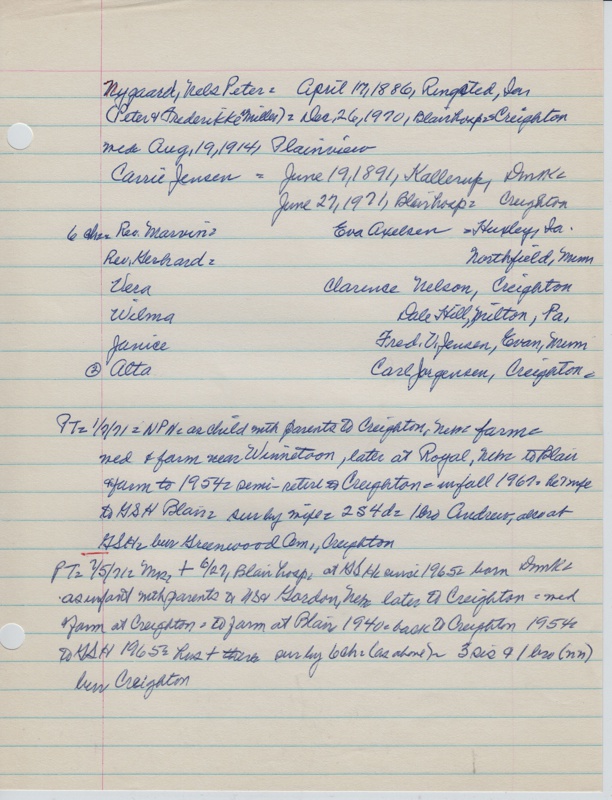 Nygaard, Nels Peter = April 17, 1886, Ringsted, Ia
(Peter & Frederikke Miller) = Dec. 26, 1970, Blair hosp = Creighton
med Aug. 19, 1914, Plainview
Carrie Jensen = June 19, 1891, Kallerup, Dmk =
June 27, 1971, Blair hosp = Creighton
6 ch = Rev. Marvin = Eva Axelsen = Huxley, Ia.
Rev. Gerhard = Northfield, Minn
Vera Clarence Nelson, Creighton
Wilma Dale Hill, Milton, Pa.
Janice Fred. V. Jensen, Evan, Minn
② Alta Carl Jorgensen, Creighton =
PT = 1/7/71 = NPN = as child with parents to Creighton, Neb = farm =
med & farm near Winnetoon, later at Royal, Neb = to Blair
& farm to 1954 = semi-retire to Creighton = in fall 1967 = he & wife
to GSH Blair = sur by wife = 2 S 4 d = 1 bro Andrew, also at
GSH = bur Greenwood Cem., Creighton
PT = 7/5/71 = Mrs + 6/27, Blair hosp, at GSH since 1965 = born Dmk =
as infant with parents to Gordon, Neb = later to Creighton = med
& farm at Creighton = to farm at Blair 1940 = back to Creighton 1954 =
to GSH 1965 = hus + there sur by 6 ch = (as above) = 3 sis & 1 bro (nn)
bur Creighton